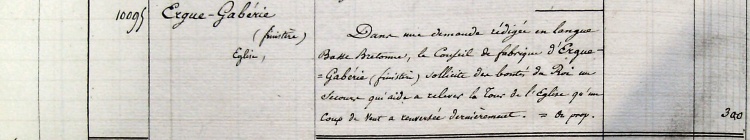 10095 Ergue-Gabérie
(finistère)
Eglise,
Dans une demande rédigée en langue
Basse Bretonne, le Conseil de fabrique d'Ergue-
=Gabérie (finistère) sollicite des bontés du Roi un
Secours qui aide à relever la Tour de l'Eglise qu'un
Coup de Vent a renversée dernièrement. = de prop.
300